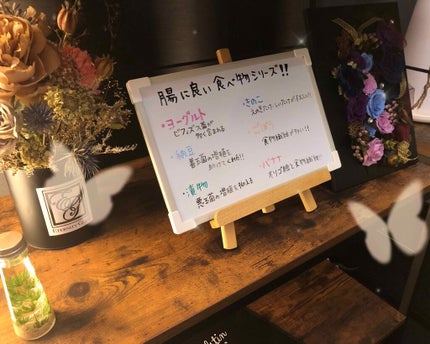 腸に良い食べ物シリーズ!!
・ヨーグルト
ビフィズス菌が
多く含まれる
・納豆
悪玉菌の増殖を
・漬物
悪玉菌の増殖を抑える
・きのこ
・ごぼう
食物繊維が
・バナナ
オリゴ糖と食物繊維
ETERNITY